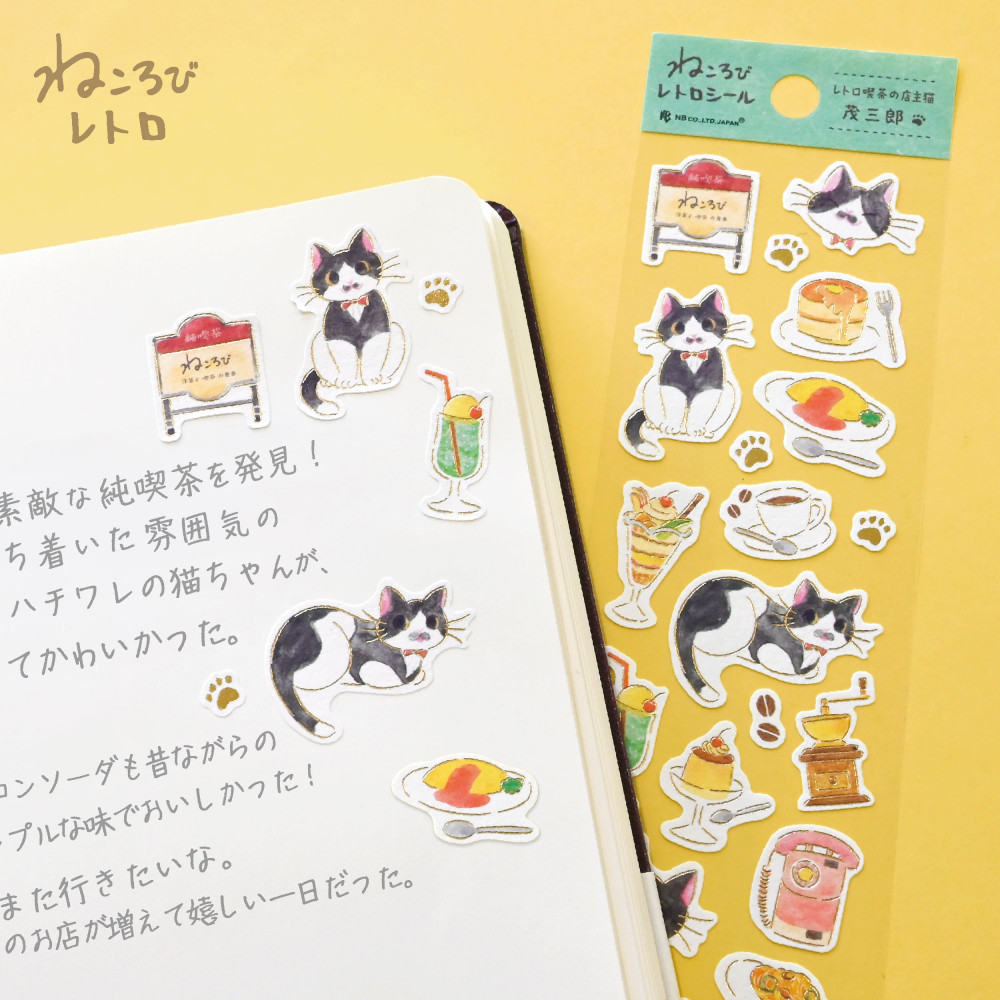 ねころび
レトロ
ねころび
レトロシール
NB CO.,LTD.JAPAN®
レトロ喫茶の店主猫
茂三郎
純喫茶
ねころび
洋菓子・喫茶・お食事
純喫茶
ねころび
洋菓子・喫茶・お食事
素敵な純喫茶を発見！
ち着いた雰囲気の
ハチワレの猫ちゃんが、
てかわいかった。
ロンソーダも昔ながらの
プルな味でおいしかった！
また行きたいな。
のお店が増えて嬉しい一日だった。